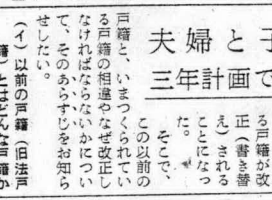 夫婦と子
三年計画で
る戸籍が改
正（書き替
え）される
ことになっ
た。
そこで、
この以前の
戸籍と、いまつくられてい
る戸籍の相違やなぜ改正し
なければならないかについ
て、そのあらすじをお知ら
せしたい。
（イ）以前の戸籍（旧法戸
籍）とはどんな戸籍か